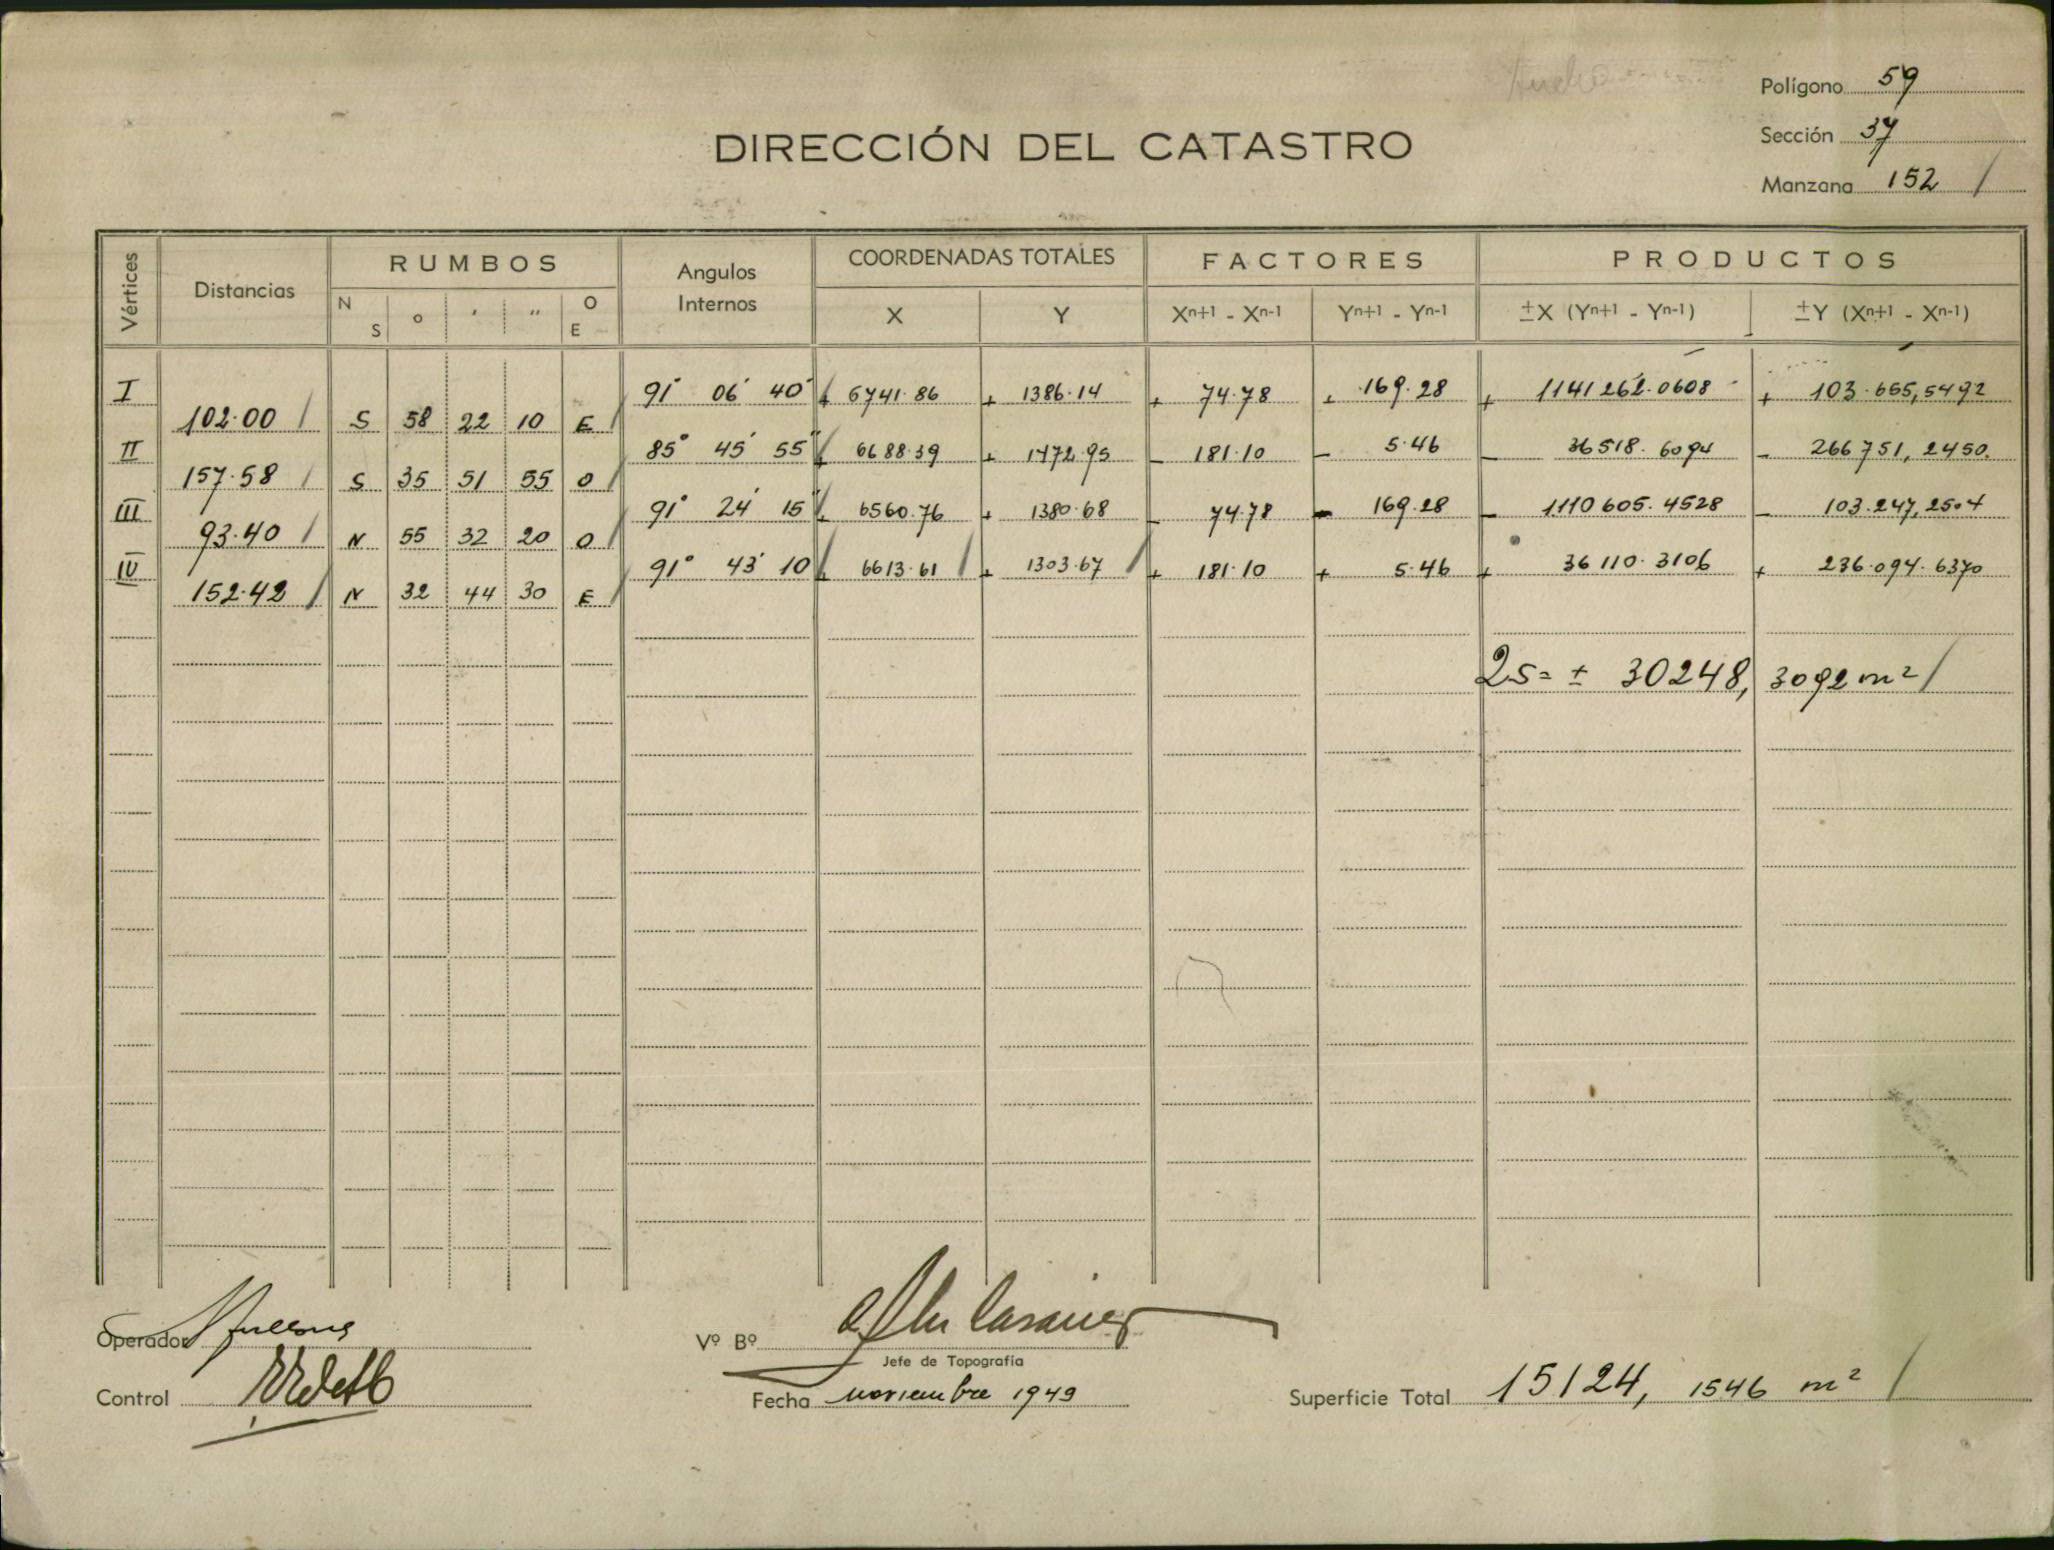 Polígono 59
DIRECCIÓN DEL CATASTRO
Sección 37
Manzana 152 /
Vértices Distancias RUMBOS Angulos Internos COORDENADAS TOTALES FACTORES PRODUCTOS
N S o ' '' O E X Y Xn+1 - Xn-1 Yn+1 - Yn-1 ±X (Yn+1 - Yn-1) ±Y (Xn+1 - Xn-1)
I 91° 06' 40" + 6741.86 + 1386.14 + 74.78 + 169.28 + 1141262.0608 + 103.655,5492
102.00 / S 58 22 10 E /
II 85° 45' 55" + 6688.39 + 1472.95 - 181.10 - 5.46 - 36518.6094 - 266751,2450.
157.58 / S 35 51 55 O /
III 91° 24' 15" + 6560.76 + 1380.68 - 74.78 - 169.28 - 1110605.4528 - 103.247,2504
93.40 / N 55 32 20 O /
IV 91° 43' 10 + 6613.61 / + 1303.67 / + 181.10 + 5.46 + 36110.3106 + 236.094.6370
152.42 / N 32 44 30 E /
2S = ± 30248,3092 m² /
Operador
Vº Bº
Jefe de Topografía
Control
Fecha noviembre 1949
Superficie Total 15124, 1546 m² /